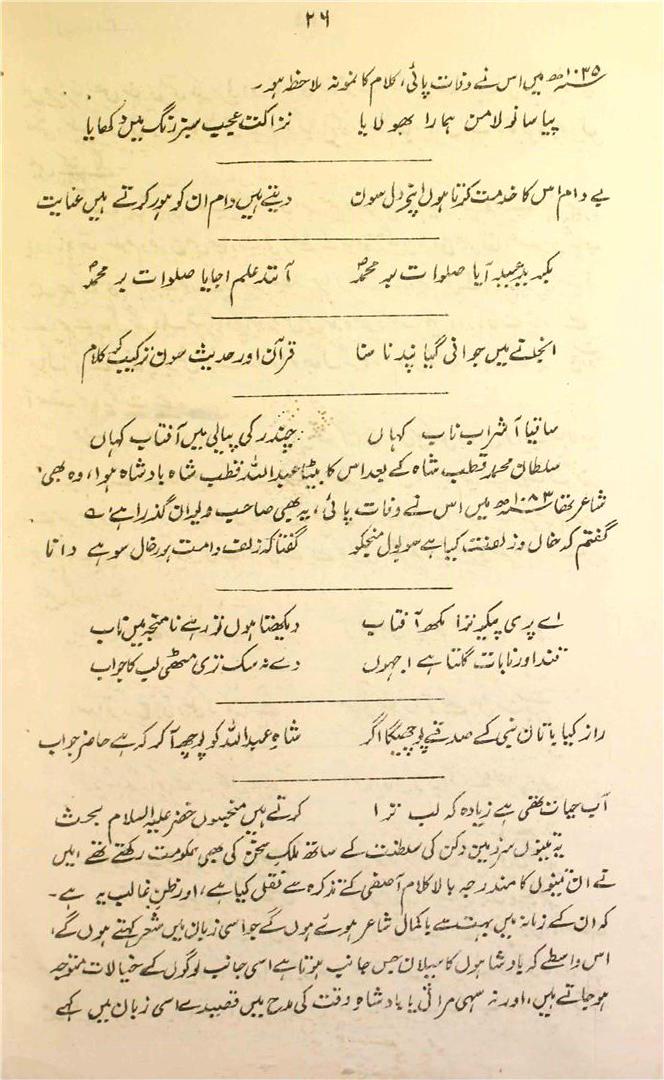 ۲۶
۱۰۳۵ھ میں اس نے وفات پائی، کلام کا نمونہ ملاحظہ ہو۔
پیا سانولا من ہمارا بھولایا نزاکت عجیب سبز رنگ میں دکھایا
بے دام اس کا خدمت کرتا ہوں اپنے دل سون دیتے ہیں دام ان کو ہور کرتے ہیں عنایت
آیا صلوات بر محمدؐ آنند علم اجایا صلوات بر محمدؐ
میں جوانی گیا پند نا سنا قرآن اور حدیث سون ترکیب کہے کلام
ساقیا آ شراب ناب کہاں چندر کی پیالی میں آفتاب کہاں
سلطان محمد قطب شاہ کے بعد اس کا بیٹا عبداللہ قطب شاہ بادشاہ ہوا، وہ بھی
شاعر تھا ۱۰۸۳ھ میں اس نے وفات پائی، یہ بھی صاحب دیوان گذرا ہے؎
گفتم کہ خال و زلفت کیا ہے سو بول منجکو گفتا کہ زلف دامت ہور خال سو ہے دانا
اے پری پیکر ترا مکھ آفتاب دیکھتا ہوں تو رہے نا منجہ میں تاب
قند اور نابات گلتا ہے اجہوں دے نہ سک تری مٹھی لب کا جواب
راز کیا باتان نبی کے صدقے پوچھیگا اگر شاہ عبداللہ کو پوچھ آ کر کہ ہے حاضر جواب
آب حیات تھی ہے زیادہ کہ لب ترا کرتے ہیں منجسوں خضر علیہ السلام بحث
یہ تینوں سرزمین دکن کی سلطنت کے ساتھ ملک سخن کی بھی حکومت رکھتے تھے، میں
نے ان تینوں کا مندرجہ بالا کلام آصفی کے تذکرہ سے نقل کیا ہے، اور ظن غالب یہ ہے۔
کہ ان کے زمانہ میں بہت سے باکمال شاعر ہوئے ہوں گے جو اسی زبان میں شعر کہتے ہوں گے،
اس واسطے کہ بادشاہوں کا میلان جس جانب ہوتا ہے اسی جانب لوگوں کے خیالات متوجہ
ہو جاتے ہیں، اور نہ سہی مراثی یا بادشاہ وقت کی مدح میں قصیدے اسی زبان میں کہے